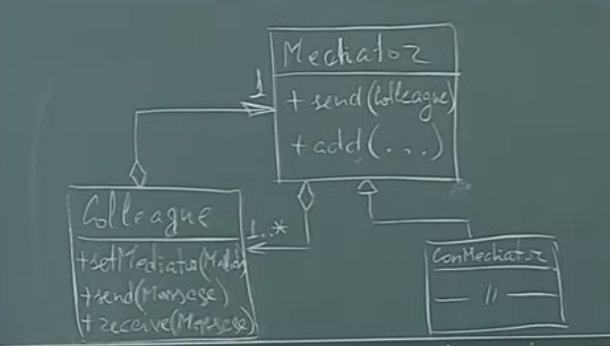 Mediator
+ send(Colleague)
+ add(...)
1
Colleague
+setMediator(Media)
+send(Message)
+receive(Message)
1..*
ConMediator
— // —